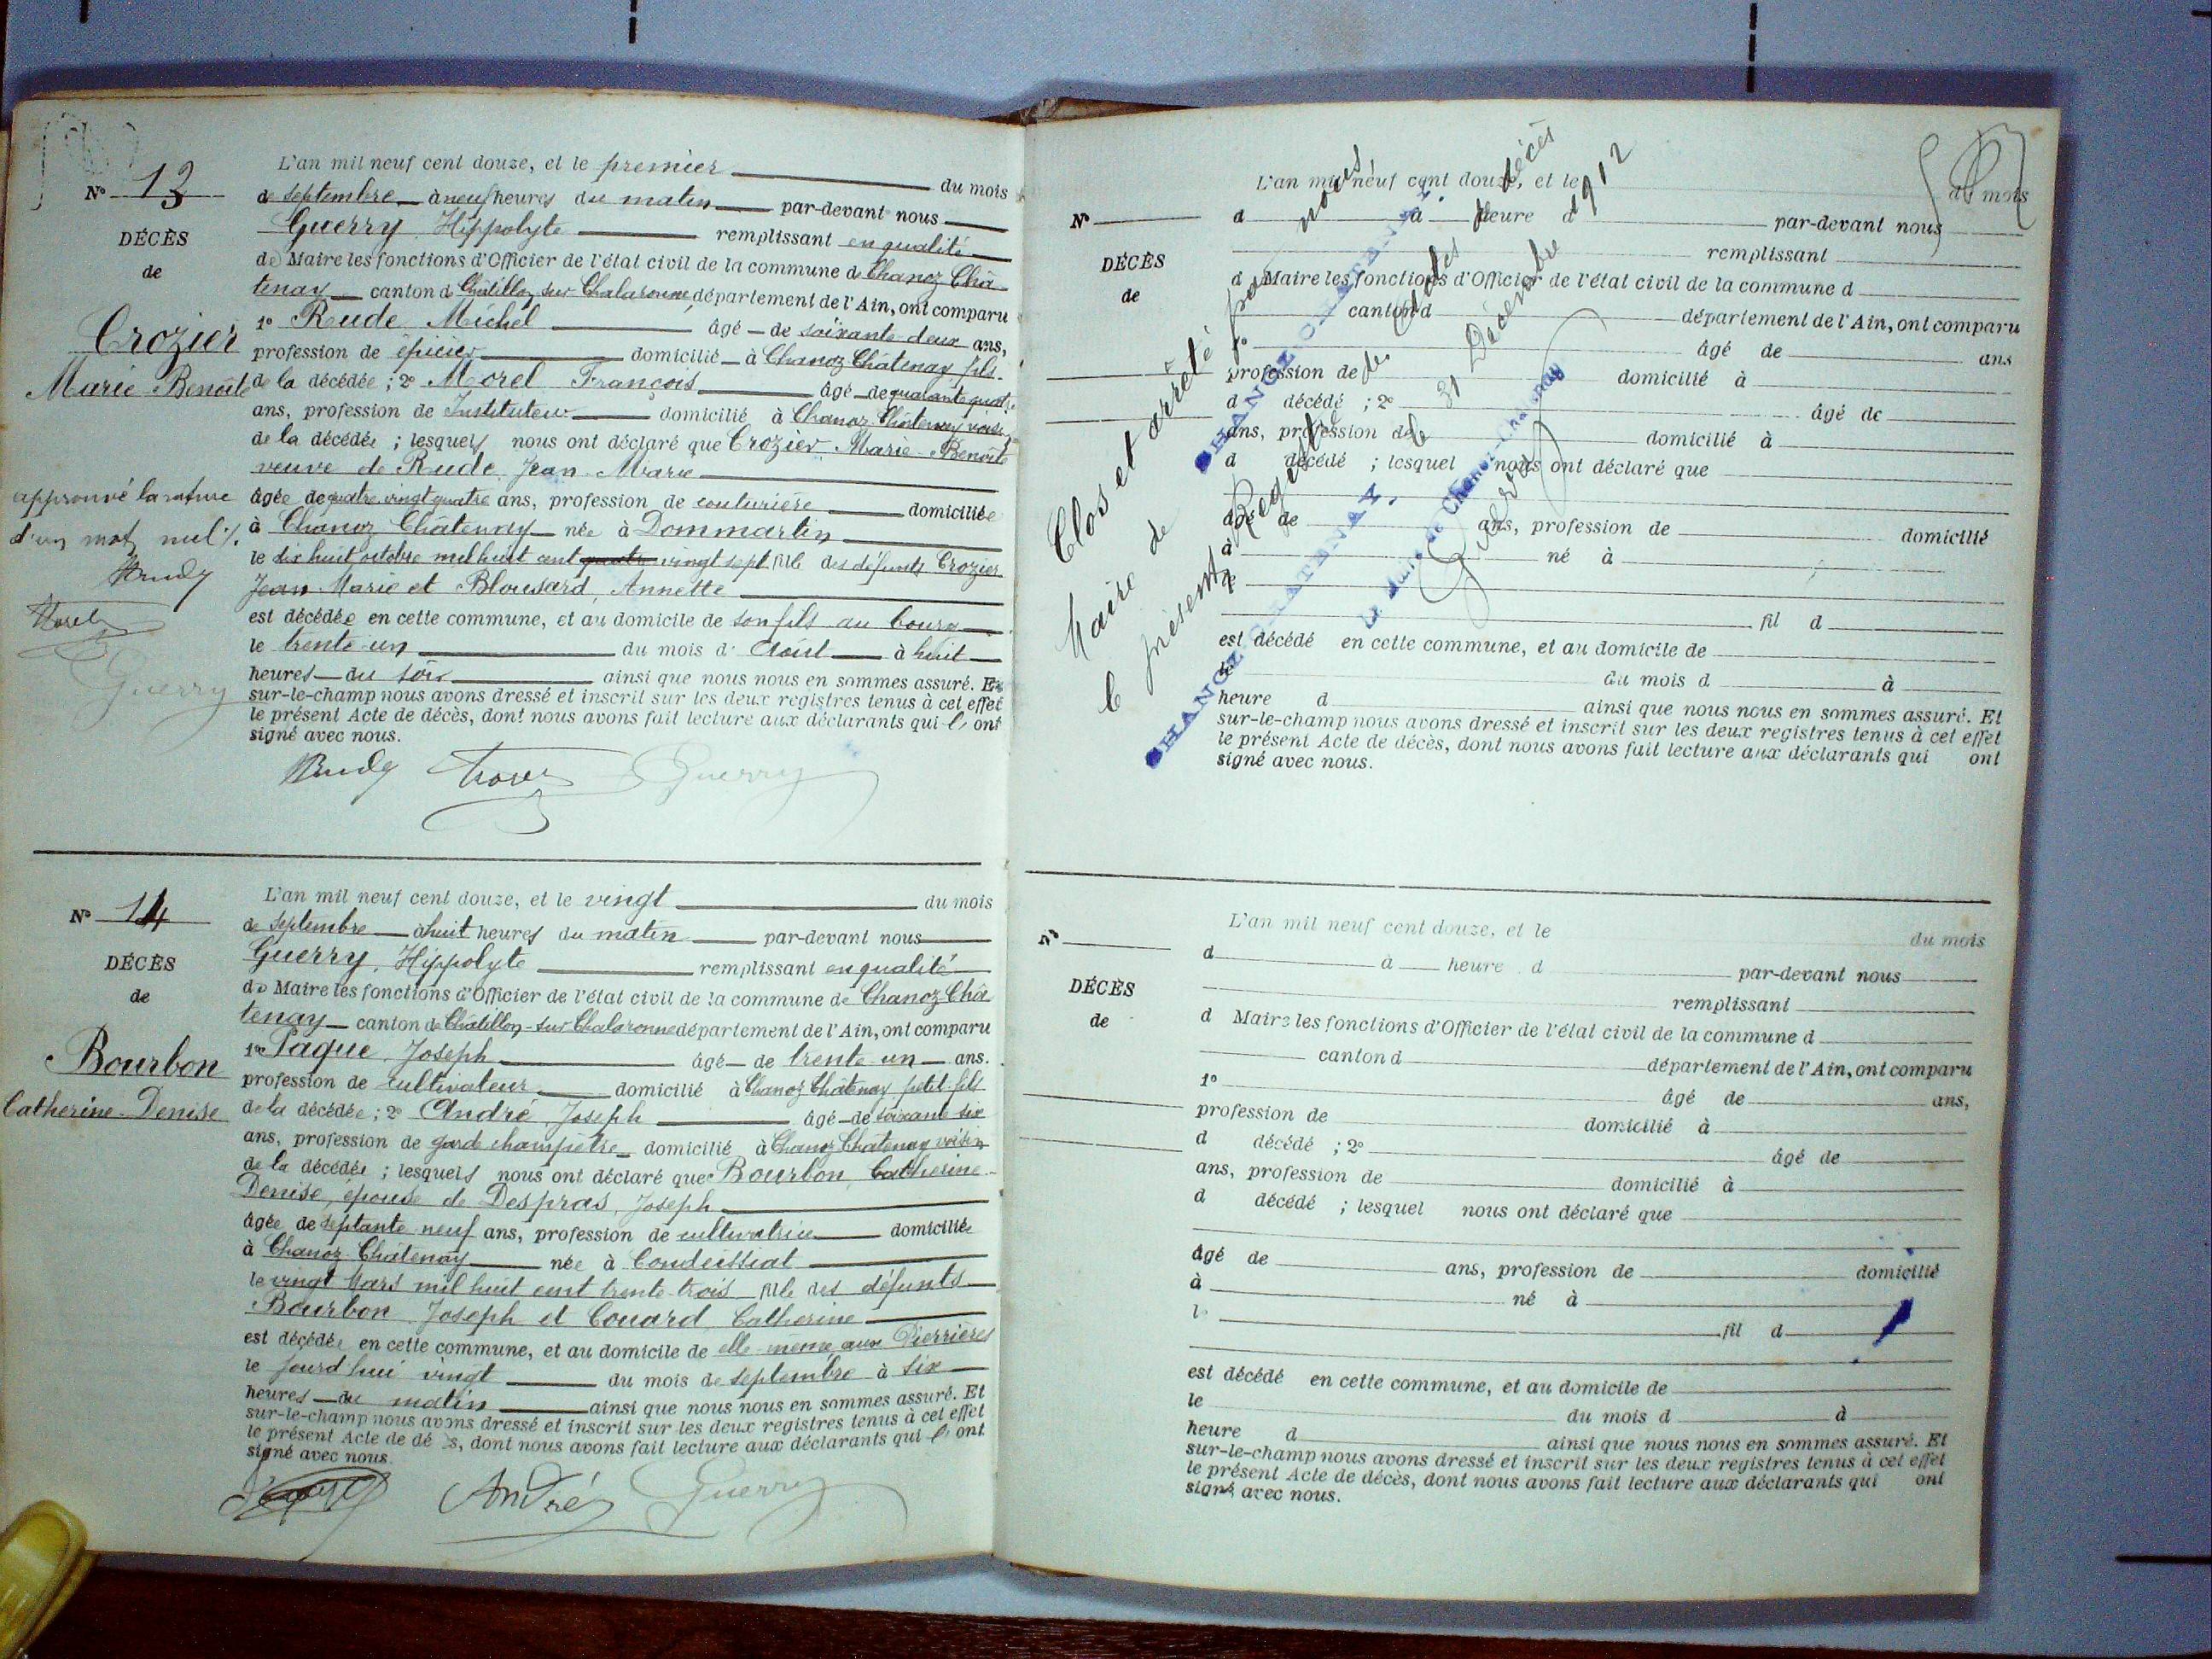 N° 13
DÉCÈS
de
Crozier
Marie-Benoite
approuvé la rature
d'un mot nul.
Rude
Morel
Guerry
L'an mil neuf cent douze, et le premier du mois
de septembre à neuf heures du matin par-devant nous
Guerry Hippolyte remplissant en qualité
de Maire les fonctions d'Officier de l'état civil de la commune de Chanoz Châ
tenay canton de Châtillon sur Chalaronne, département de l'Ain, ont comparu
1° Rude Michel âgé de soixante deux ans,
profession de épicier domicilié à Chanoz Châtenay fils
de la décédée ; 2° Morel François âgé de quarante quatre
ans, profession de Instituteur domicilié à Chanoz Châtenay voisin
de la décédée ; lesquels nous ont déclaré que Crozier Marie-Benoite
veuve de Rude Jean-Marie
âgée de quatre vingt quatre ans, profession de couturière domiciliée
à Chanoz Châtenay née à Dommartin
le dix huit octobre mil huit cent quatre vingt sept fille des défunts Crozier
Jean-Marie et Blousard, Annette
est décédée en cette commune, et au domicile de son fils au bourg
le trente un du mois d'Août à huit
heures du soir ainsi que nous nous en sommes assuré. Et
sur-le-champ nous avons dressé et inscrit sur les deux registres tenus à cet effet
le présent Acte de décès, dont nous avons fait lecture aux déclarants qui l' ont
signé avec nous.
Rude Morel Guerry
N° 14
DÉCÈS
de
Bourbon
Catherine-Denise
L'an mil neuf cent douze, et le vingt du mois
de septembre à huit heures du matin par-devant nous
Guerry, Hippolyte remplissant en qualité
de Maire les fonctions d'Officier de l'état civil de la commune de Chanoz Châ
tenay canton de Châtillon-sur-Chalaronne département de l'Ain, ont comparu
1° Paque Joseph âgé de trente un ans.
profession de cultivateur domicilié à Chanoz Châtenay petit fils
de la décédée ; 2° André Joseph âgé de soixante six
ans, profession de garde champêtre domicilié à Chanoz Châtenay voisin
de la décédée ; lesquels nous ont déclaré que Bourbon, Catherine-
Denise, épouse de Despras, Joseph
âgée de septante neuf ans, profession de cultivatrice domiciliée
à Chanoz-Châtenay née à Condeissiat
le vingt Mars mil huit cent trente-trois fille des défunts
Bourbon Joseph et Couard Catherine
est décédée en cette commune, et au domicile de elle-même aux Pierrières
le jourd'hui vingt du mois de septembre à six
heures du matin ainsi que nous nous en sommes assuré. Et
sur-le-champ nous avons dressé et inscrit sur les deux registres tenus à cet effet
le présent Acte de dé s, dont nous avons fait lecture aux déclarants qui l' ont
signé avec nous.
André Guerry
N°
DÉCÈS
de
L'an mil neuf cent douze, et le du mois
d à heure d par-devant nous
remplissant
d Maire les fonctions d'Officier de l'état civil de la commune d
canton d département de l'Ain, ont comparu
1° âgé de ans
profession de domicilié à
d décédé ; 2° âgé de
ans, profession de domicilié à
d décédé ; lesquel nous ont déclaré que
âgé de ans, profession de domicilié
à né à
le
fil d
est décédé en cette commune, et au domicile de
le du mois d à
heure d ainsi que nous nous en sommes assuré. Et
sur-le-champ nous avons dressé et inscrit sur les deux registres tenus à cet effet
le présent Acte de décès, dont nous avons fait lecture aux déclarants qui ont
signé avec nous.
Clos et arrêté par nous,
Maire de CHANOZ-CHATENAY
le présent Registre des actes de décès
CHANOZ-CHATENAY, le 31 Décembre 1912
Le Maire de Chanoz-Chatenay
Guerry
N°
DÉCÈS
de
L'an mil neuf cent douze, et le du mois
d à heure d par-devant nous
remplissant
d Maire les fonctions d'Officier de l'état civil de la commune d
canton d département de l'Ain, ont comparu
1° âgé de ans,
profession de domicilié à
d décédé ; 2° âgé de
ans, profession de domicilié à
d décédé ; lesquel nous ont déclaré que
âgé de ans, profession de domicilié
à né à
l° fil d
est décédé en cette commune, et au domicile de
le du mois d à
heure d ainsi que nous nous en sommes assuré. Et
sur-le-champ nous avons dressé et inscrit sur les deux registres tenus à cet effet
le présent Acte de décès, dont nous avons fait lecture aux déclarants qui ont
signé avec nous.